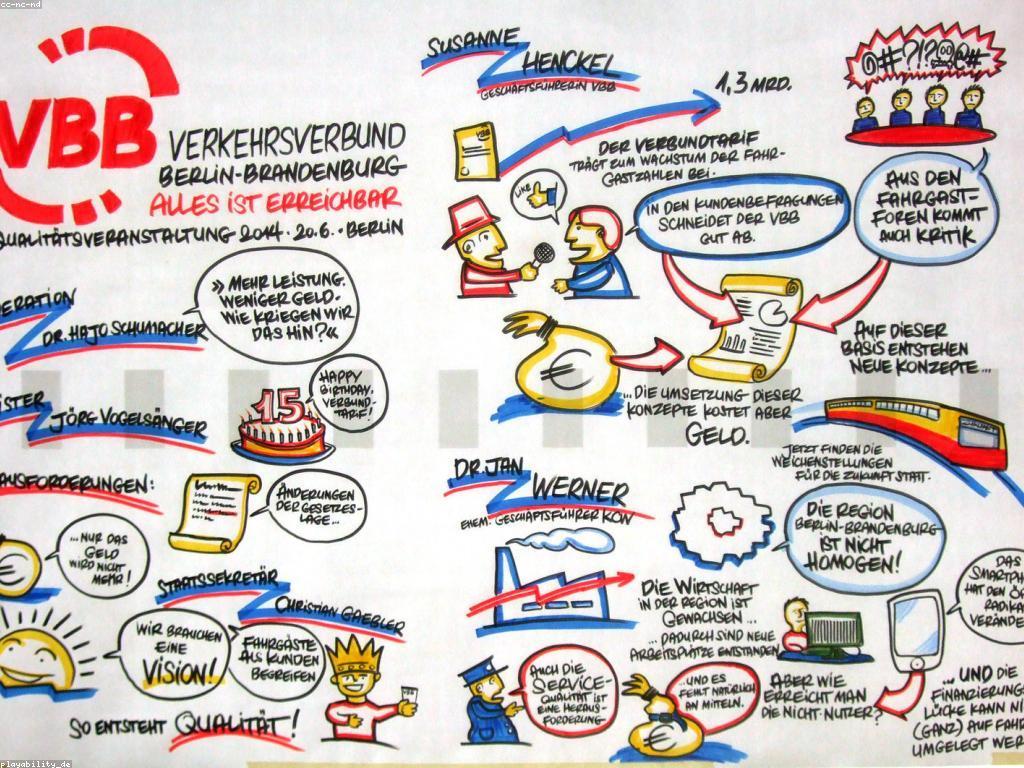 cc-nc-nd
VBB
VERKEHRSVERBUND
BERLIN-BRANDENBURG
ALLES IST ERREICHBAR
QUALITÄTSVERANSTALTUNG 2014 · 20.6. · BERLIN
DR. HAJO SCHUMACHER
» MEHR LEISTUNG.
WENIGER GELD.
WIE KRIEGEN WIR
DAS HIN? «
JÖRG VOGELSÄNGER
15
HAPPY
BIRTHDAY,
VERBUND-
TARIF!
AUSFORDERUNGEN:
ÄNDERUNGEN
DER GESETZES-
LAGE...
€
... NUR DAS
GELD
WIRD NICHT
MEHR!
STAATSSEKRETÄR
CHRISTIAN GAEBLER
WIR BRAUCHEN
EINE
VISION!
FAHRGÄSTE
ALS KUNDEN
BEGREIFEN
SO ENTSTEHT QUALITÄT!
SUSANNE
HENCKEL
GESCHÄFTSFÜHRERIN VBB
1,3 MRD.
VBB
DER VERBUNDTARIF
TRÄGT ZUM WACHSTUM DER FAHR-
GASTZAHLEN BEI.
LIKE
IN DEN KUNDENBEFRAGUNGEN
SCHNEIDET DER VBB
GUT AB.
AUS DEN
FAHRGAST-
FOREN KOMMT
AUCH KRITIK
AUF DIESER
BASIS ENTSTEHEN
NEUE KONZEPTE...
€
... DIE UMSETZUNG DIESER
KONZEPTE KOSTET ABER
GELD.
JETZT FINDEN DIE
WEICHENSTELLUNGEN
FÜR DIE ZUKUNFT STATT.
DR. JAN
WERNER
EHEM. GESCHÄFTSFÜHRER KCW
DIE REGION
BERLIN-BRANDENBURG
IST NICHT
HOMOGEN!
DIE WIRTSCHAFT
IN DER REGION IST
GEWACHSEN...
... DADURCH SIND NEUE
ARBEITSPLÄTZE ENTSTANDEN
DAS
HAT DEN
AUCH DIE
SERVICE-
QUALITÄT IST
EINE HERAUS-
FORDERUNG
... UND ES
FEHLT NATÜRLICH
AN MITTELN.
€
ABER WIE
ERREICHT MAN
DIE NICHT-NUTZER?
... UND DIE
FINANZIERUNGS
LÜCKE KANN NI
(GANZ) AUF FAH
UMGELEGT WER
playability_de